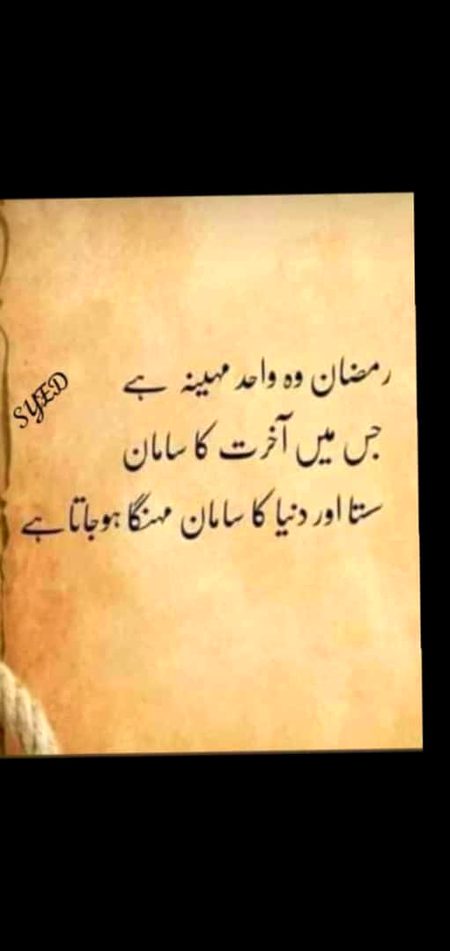 رمضان وہ واحد مہینہ ہے
جس میں آخرت کا سامان
ستا اور دنیا کا سامان مہنگا ہوجاتا ہے
SYED